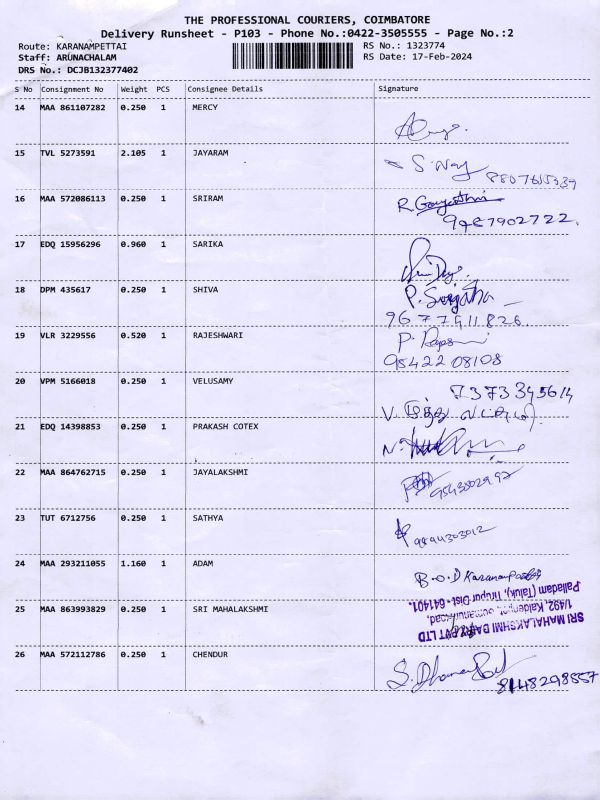 THE PROFESSIONAL COURIERS, COIMBATORE
Delivery Runsheet - P103 - Phone No.:0422-3505555 - Page No.:2
Route: KARANAMPETTAI RS No.: 1323774
Staff: ARUNACHALAM RS Date: 17-Feb-2024
DRS No.: DCJB132377402
S No Consignment No Weight PCS Consignee Details Signature
14 MAA 861107282 0.250 1 MERCY
15 TVL 5273591 2.105 1 JAYARAM
16 MAA 572086113 0.250 1 SRIRAM R Gayathri
9487902722.
17 EDQ 15956296 0.960 1 SARIKA
18 DPM 435617 0.250 1 SHIVA P. Sujatha
9677911826
19 VLR 3229556 0.520 1 RAJESHWARI P.
95422 08108
20 VPM 5166018 0.250 1 VELUSAMY 7373345614
V.
21 EDQ 14398853 0.250 1 PRAKASH COTEX N.
22 MAA 864762715 0.250 1 JAYALAKSHMI
23 TUT 6712756 0.250 1 SATHYA 9894303012
24 MAA 293211055 1.160 1 ADAM B.O.D Karanampettai
25 MAA 863993829 0.250 1 SRI MAHALAKSHMI
SRI MAHALAKSHMI DAIRY PVT LTD
1/492,
Palladam (Taluk), Tirupur Dist - 641401.
26 MAA 572112786 0.250 1 CHENDUR S.
8148298557